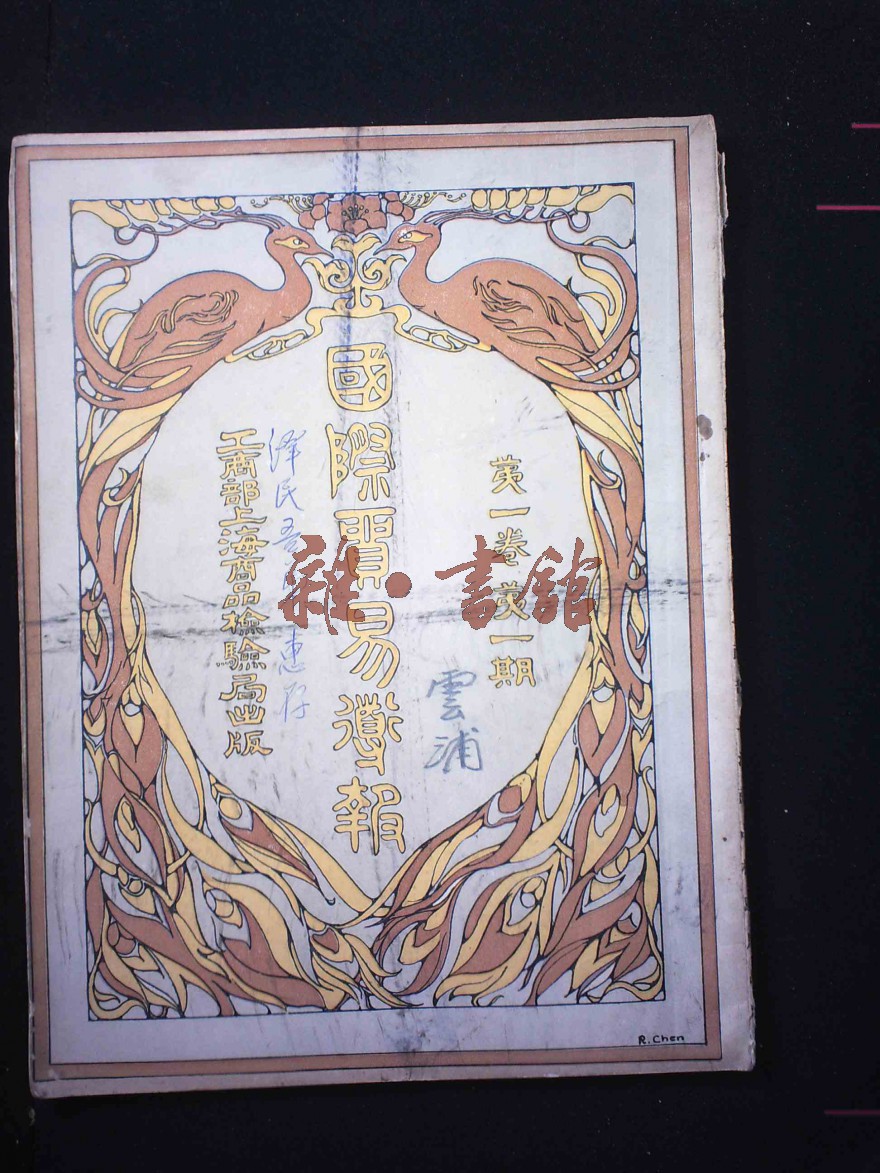 第一卷 第一期
雲浦
國際貿易導報
澤民吾 惠存
工商部上海商品檢驗局出版
雜·書館
R.Chen